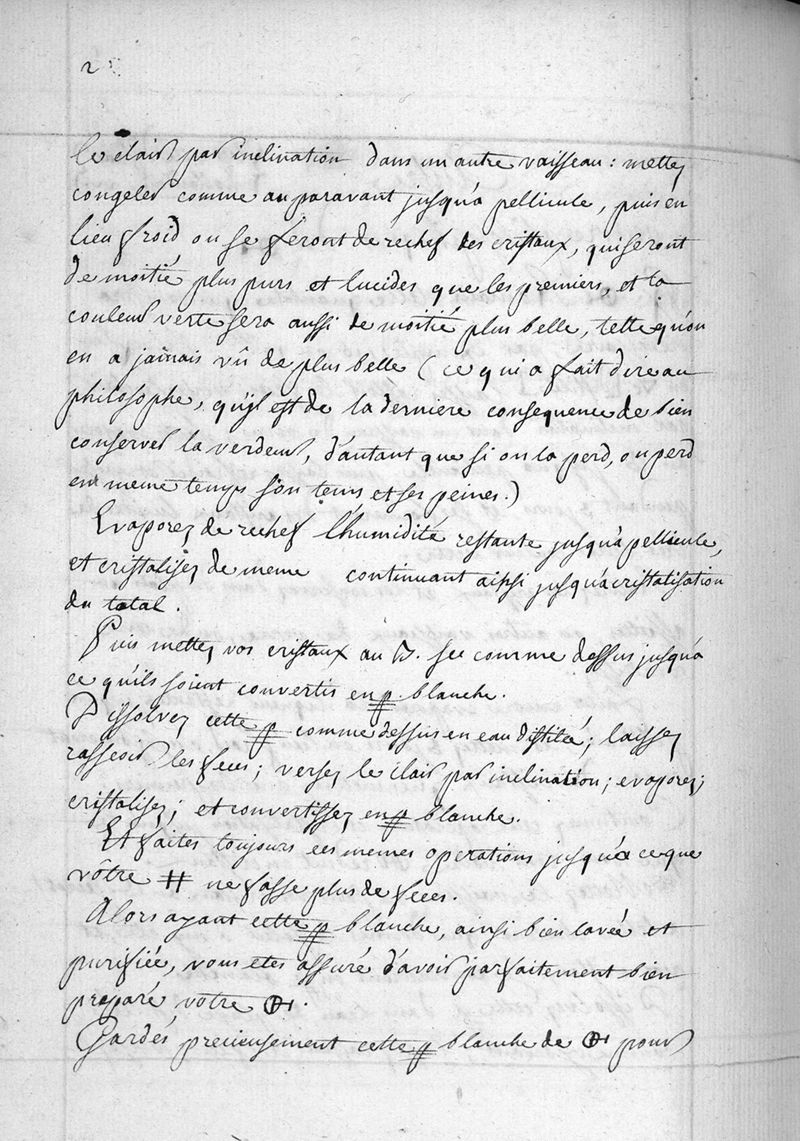 2
le clair par inclination dans un autre vaisseau: mettez
congeler comme au paravant jusqu'a pellicule, puis en
lieu froid ou se feront de rechef des cristaux, qui seront
de moitié plus purs et lucides que les premiers, et la
couleur verte sera aussi de moitié plus belle, telle qu'on
en a jamais vû de plus belle (ce qui a fait dire au
philosophe, qu'il est de la derniere consequence de bien
conserver la verdeur, d'autant que si on la perd, on perd
en meme temps son tems et ses peines.)
Evaporez de rechef l'humidité restante jusqu'a pellicule,
et cristalisez de meme continuant ainsi jusqu'a cristalisation
du total.
Puis mettez vos cristaux au sec comme dessus jusqu'a
ce qu'ils soient convertis en blanche.
Dissolvez cette comme dessus en eau distilée; laissez
rasseoir les feces; versez le clair par inclination; evaporez;
cristalisez; et convertissez en blanche.
Et faites toujours ces memes operations jusqu'a ce que
vôtre ne fasse plus de feces.
Alors ayant cette blanche, ainsi bien lavée et
purifiée, vous etes assuré d'avoir parfaitement bien
preparé votre
Gardés precieusement cette blanche de pour